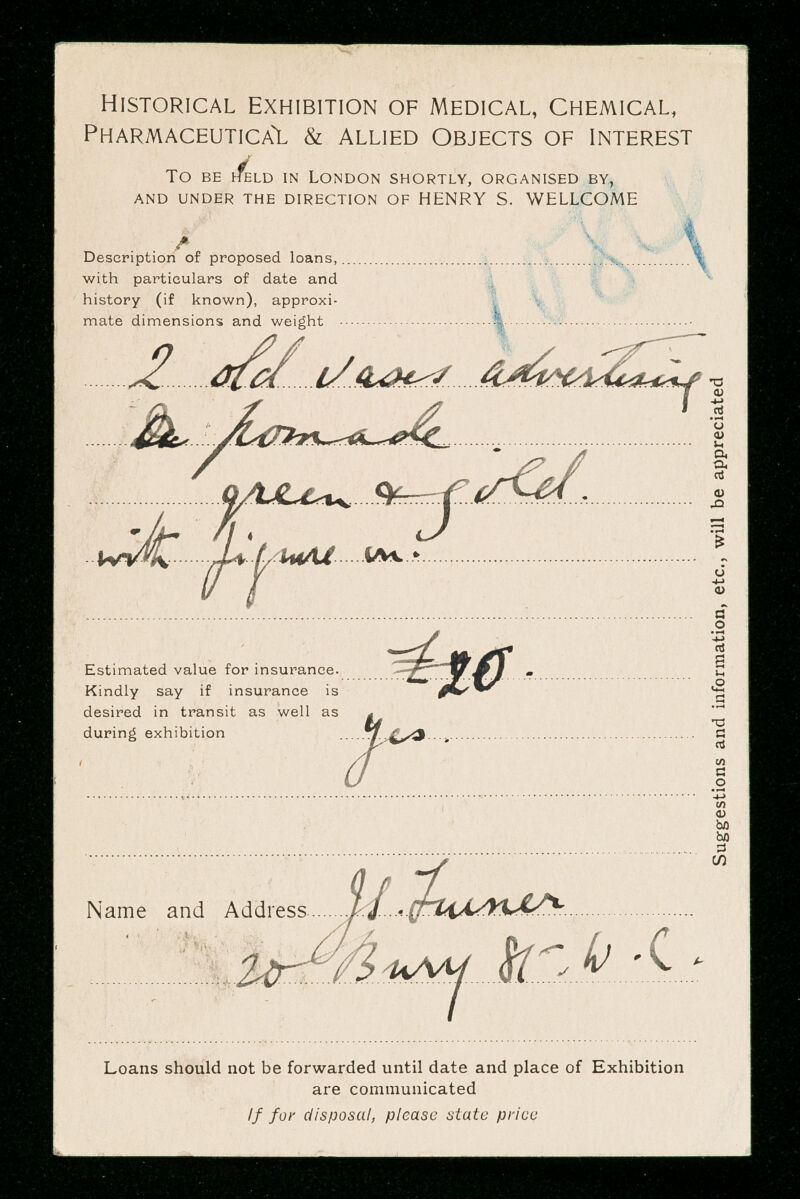 HISTORICAL EXHIBITION OF MEDICAL, CHEMICAL,
PHARMACEUTICAL & ALLIED OBJECTS OF INTEREST
TO BE HELD IN LONDON SHORTLY, ORGANISED BY,
AND UNDER THE DIRECTION OF HENRY S. WELLCOME
1084
Description of proposed loans,
with particulars of date and
history (if known), approxi-
mate dimensions and weight
2 old vases advertising
pomade.
green & gold.
with figure on.
Estimated value for insurance.
£20.
Kindly say if insurance is
desired in transit as well as
during exhibition
yes.
Name and Address J S. Turner
20 Bury St. W.C.
Loans should not be forwarded until date and place of Exhibition
are communicated
If for disposal, please state price
Suggestions and information, etc., will be appreciated